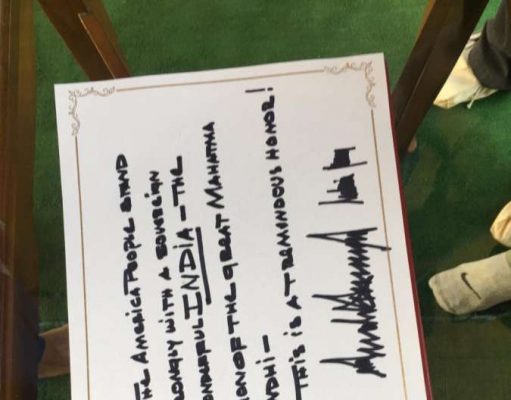 THE AMERICA PEOPLE STAND
ONGLY WITH A SOVEREIGN
ONDERFUL INDIA – THE
ION OF THE GREAT MAHATMA
NDHI –
THIS IS A TREMENDOUS HONOR!